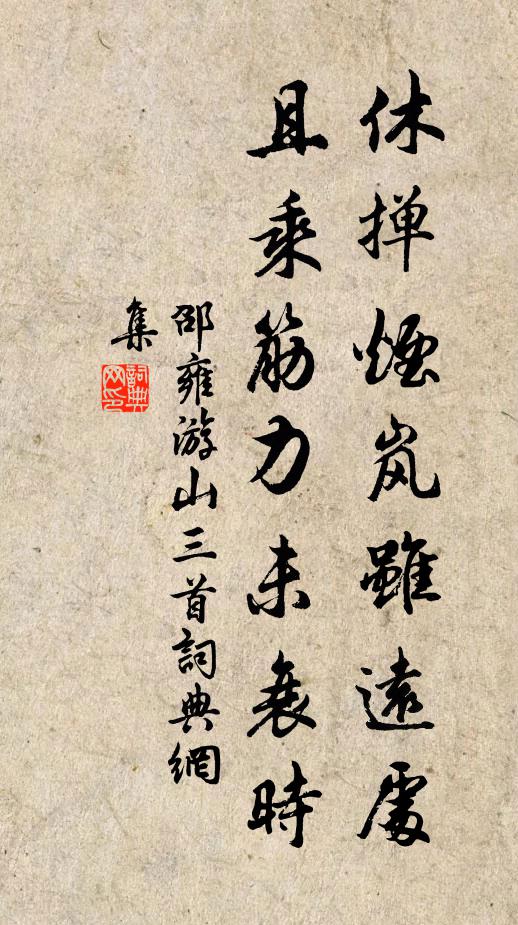 休掸煙岚雖遠處
且乘筋力未衰時
邵雍游山三首詞典網
集
詞典
网印